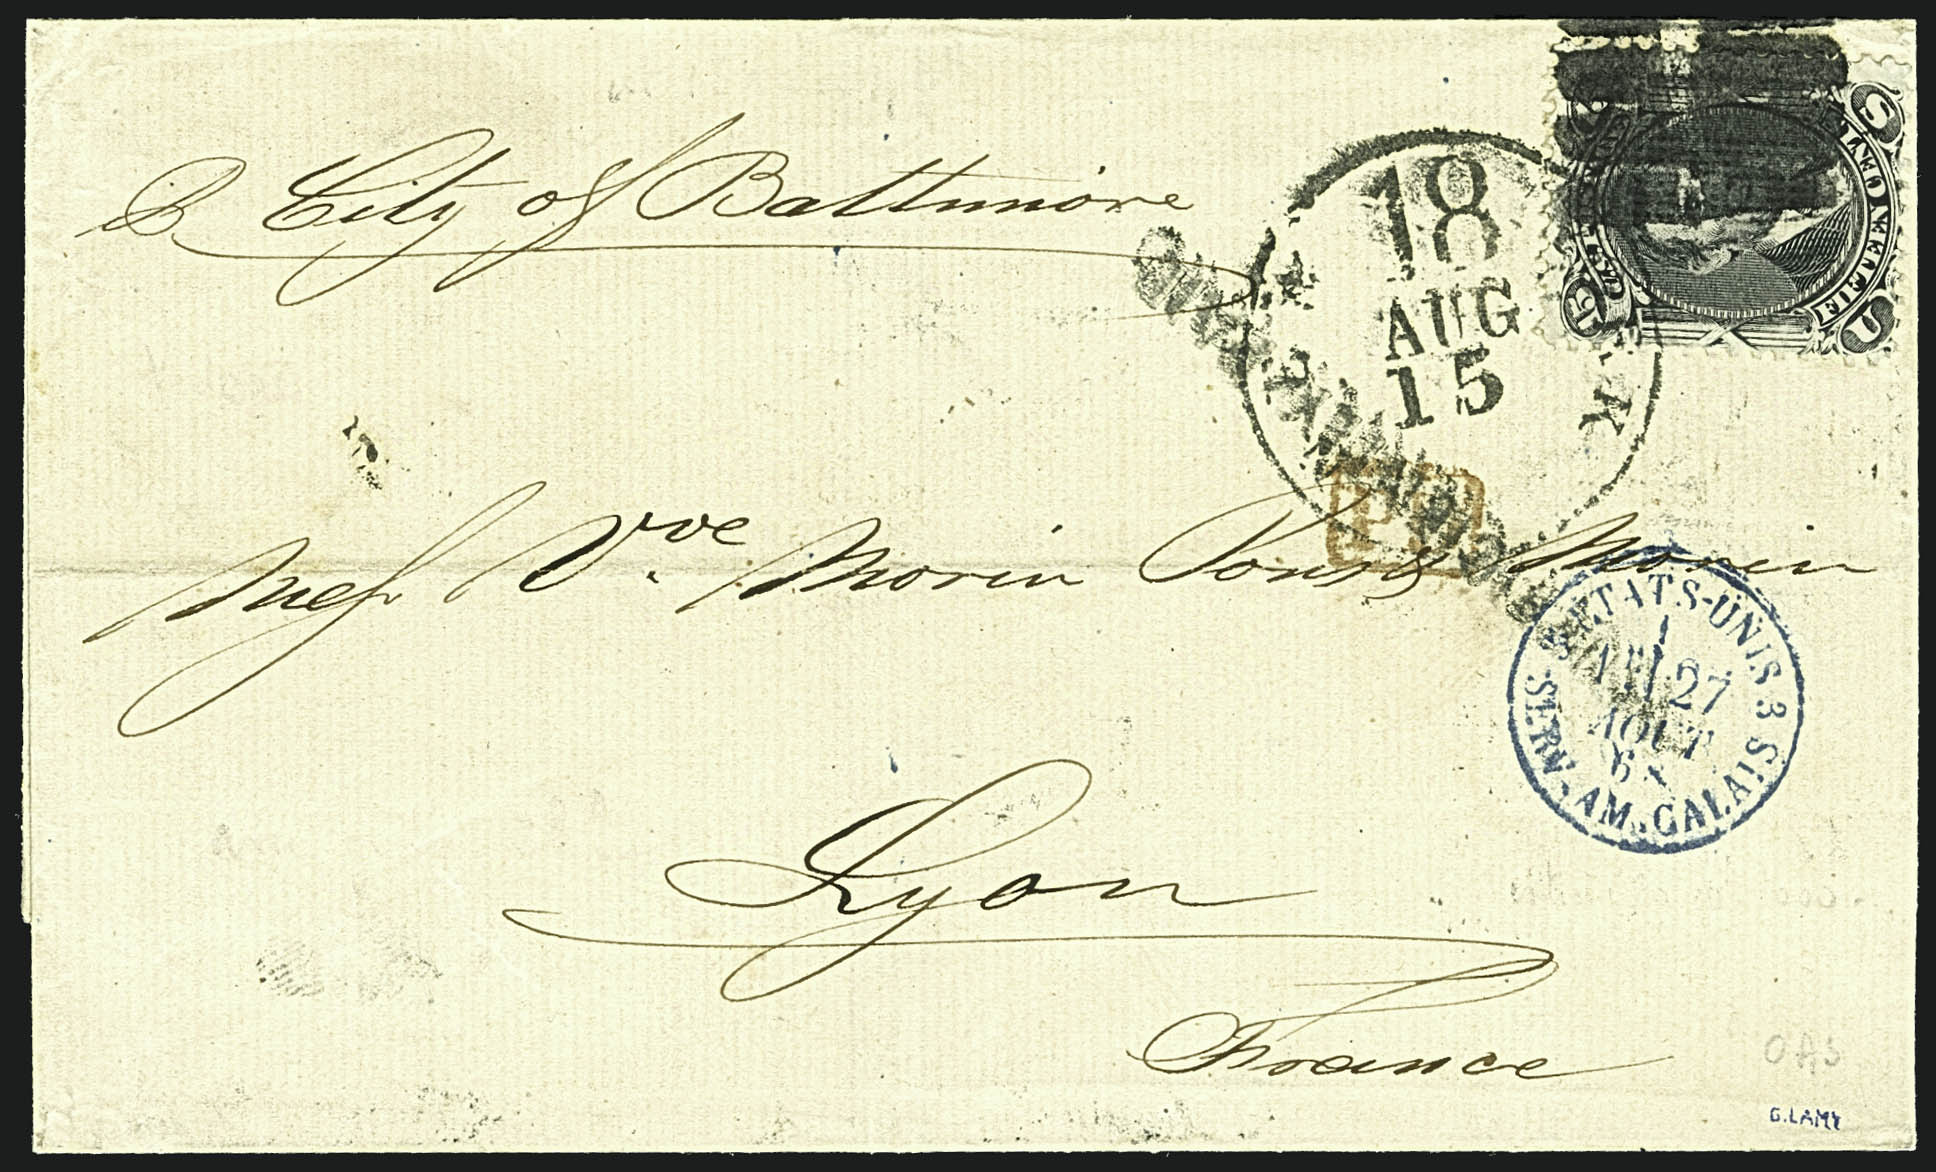 ℘ City of Baltimore
18
AUG
15
FIFTEEN CENTS
U S
15
P.D.
Mess Vve Morin Pons & Morin
ETATS-UNIS 3 SERV. AM. CALAIS
27
AOUT
Lyon
France
OAS
G.LAMY